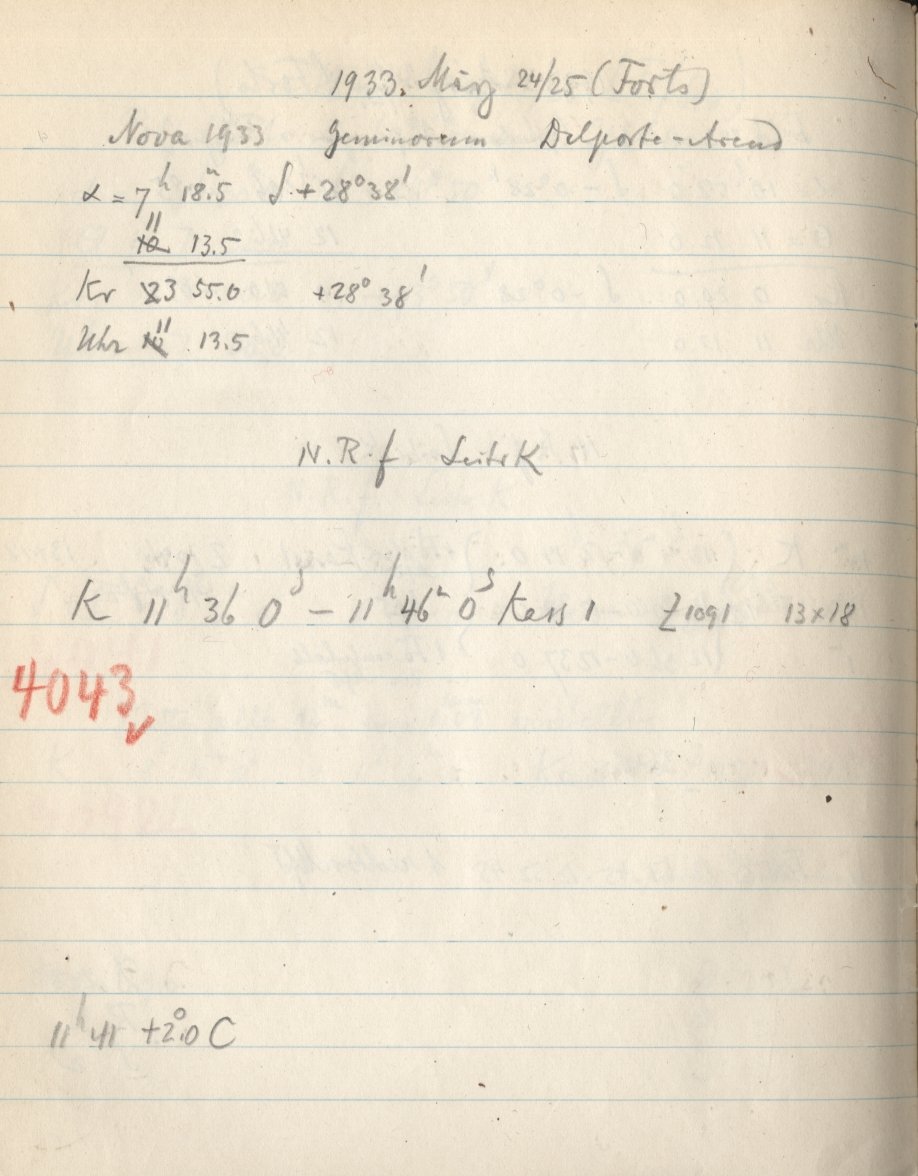 1933. März 24/25 (Forts)
Nova 1933 Geminorum Delporte-Arend
α = 7h 18m.5 δ +28° 38'
11 13.5
Kr 23 55.0 +28° 38'
Uhr 11 13.5
N. R. f. Leitr K
K 11h 36 0s – 11h 46m 0s Kass 1 Z 1091 13x18
4043
11h 41 +2°.0 C